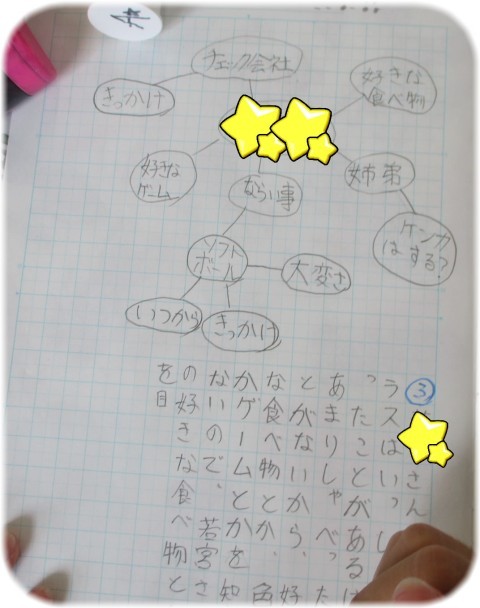 チェック会社
きっかけ
好きな
食べ物
好きな
ゲーム
ならい事
姉弟
ケンカ
はする?
ソフト
ボール
大変さ
いつから
きっかけ
③
さん
ラスはいっし
ったことがあるけ
あまりしゃべった
とがないから、好
な食べ物とか、色
かゲームとかを知
ないので、若宮さ
の好きな食べ物と
を目